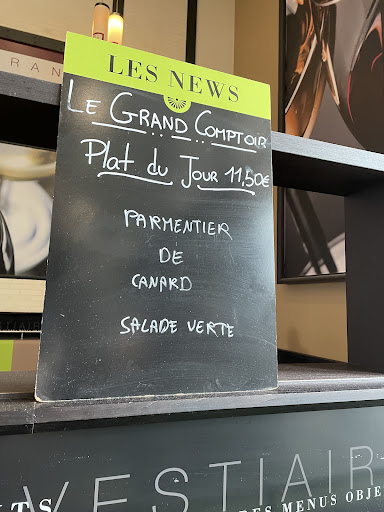 LES NEWS
LE GRAND COMPTOIR
Plat du Jour 11,50€
PARMENTIER
DE
CANARD
SALADE VERTE
RAN
VESTIAIR
TS
RES MENUS OBJE